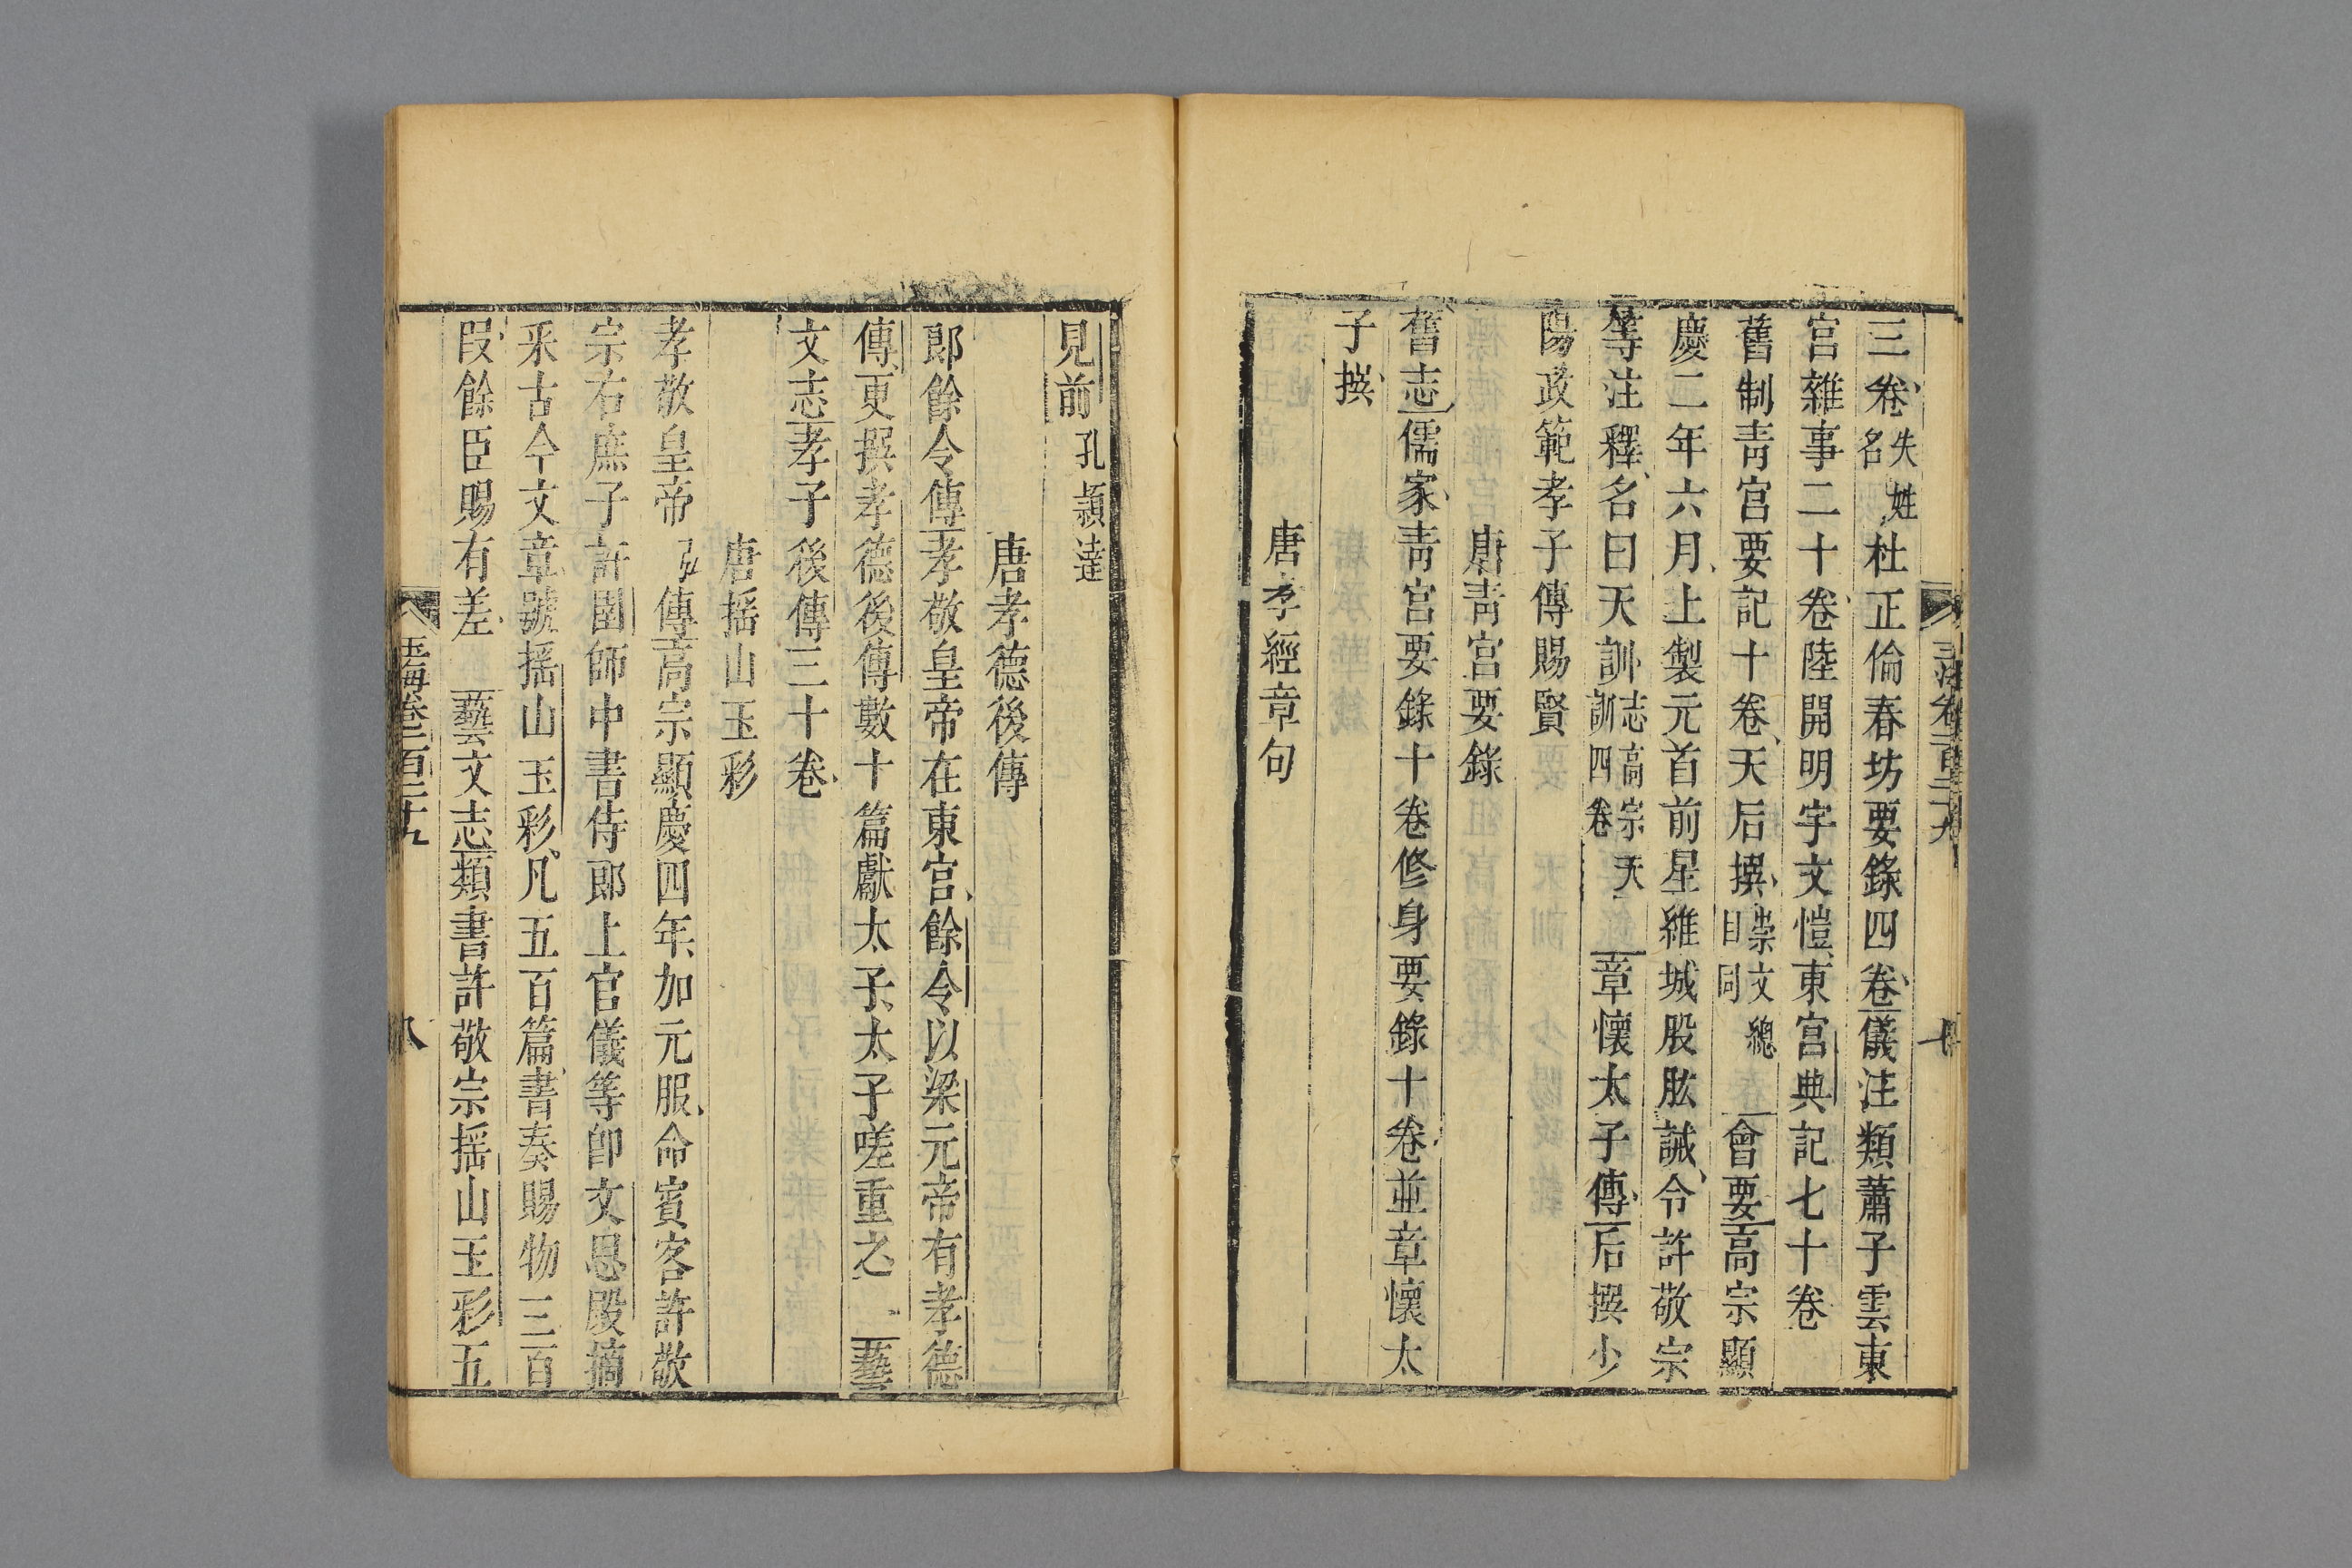 三卷失姓名杜正倫春坊要錄四卷儀注類蕭子雲東
宮雜事二十卷陸開明宇文愷東宮典記七十卷
舊制青宮要記十卷天后撰崇文總目同會要高宗顯
慶二年六月上製元首前星維城股肱誡令許敬宗
等注釋名曰天訓志高宗天訓四卷章懷太子傳后撰少
陽政範孝子傳賜賢
唐青宮要錄
舊志儒家青宮要錄十卷修身要錄十卷並章懷太
子撰
唐孝經章句
見前孔穎達
唐孝德後傳
郎餘令傳孝敬皇帝在東宮餘令以梁元帝有孝德
傳更撰孝德後傳數十篇獻太子太子嗟重之藝
文志孝子後傳三十卷
唐搖山玉彩
孝敬皇帝弘傳高宗顯慶四年加元服命賓客許敬
宗右庶子許圉師中書侍郎上官儀等卽文思殿摘
采古今文章號搖山玉彩凡五百篇書奏賜物三百
段餘臣賜有差藝文志類書許敬宗搖山玉彩五
玉海卷一百二十九
八